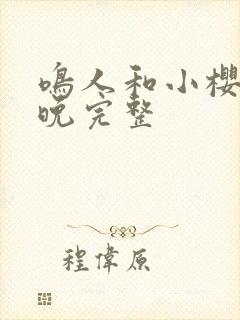 鳴人和小櫻
晚完整
程偉原